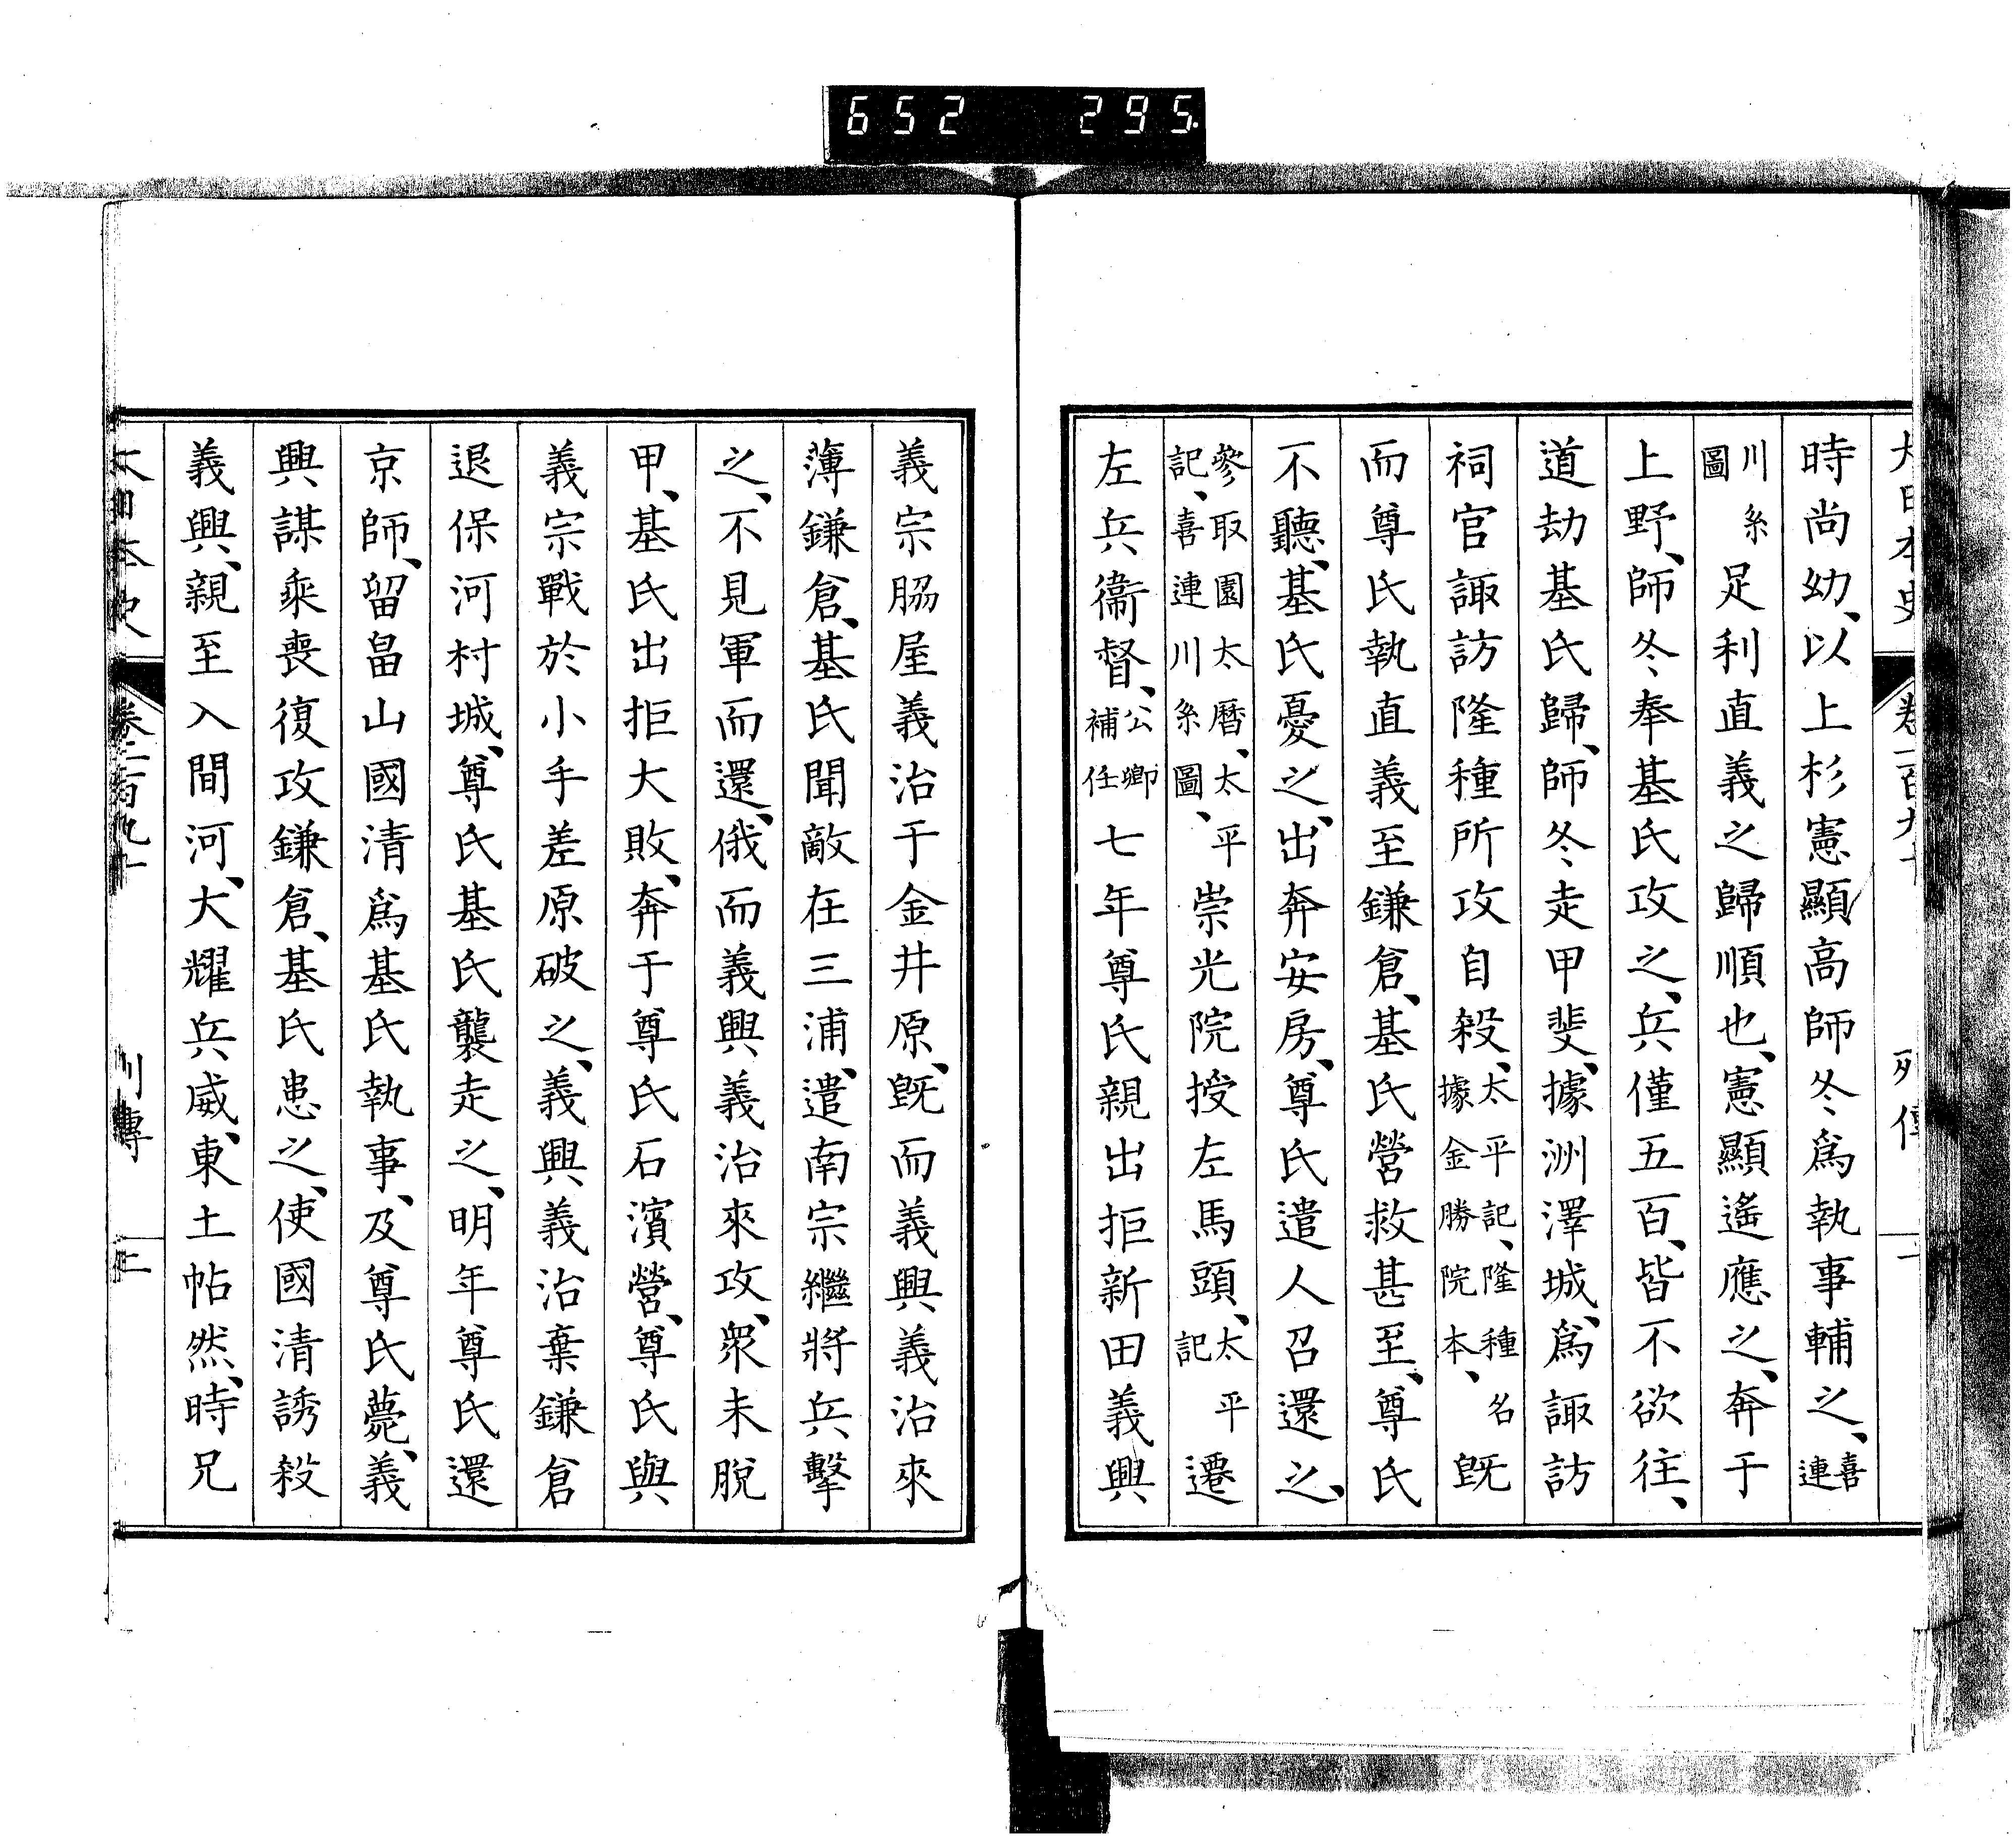 652 295.
時尚幼、以上杉憲顯高師冬爲執事輔之、喜連
川系圖足利直義之歸順也、憲顯遙應之、奔于
上野、師冬奉基氏攻之、兵僅五百、皆不欲往、
道劫基氏歸、師冬走甲斐、據洲澤城、爲諏訪
祠官諏訪隆種所攻自殺、太平記、隆種名據金勝院本、旣
而尊氏執直義至鎌倉、基氏營救甚至、尊氏
不聽、基氏憂之、出奔安房、尊氏遣人召還之、
參取園太曆、太平記、喜連川系圖、崇光院授左馬頭、太平記遷
左兵衞督、公卿補任七年尊氏親出拒新田義興
義宗脇屋義治于金井原、旣而義興義治來
薄鎌倉、基氏聞敵在三浦、遣南宗繼將兵擊
之、不見軍而還、俄而義興義治來攻、衆未脫
甲、基氏出拒大敗、奔于尊氏石濱營、尊氏與
義宗戰於小手差原破之、義興義治棄鎌倉
退保河村城、尊氏基氏襲走之、明年尊氏還
京師、留畠山國清爲基氏執事、及尊氏薨、義
興謀乘喪復攻鎌倉、基氏患之、使國清誘殺
義興、親至入間河、大耀兵威、東土帖然、時兄
大日本史 卷二百九十 列傳